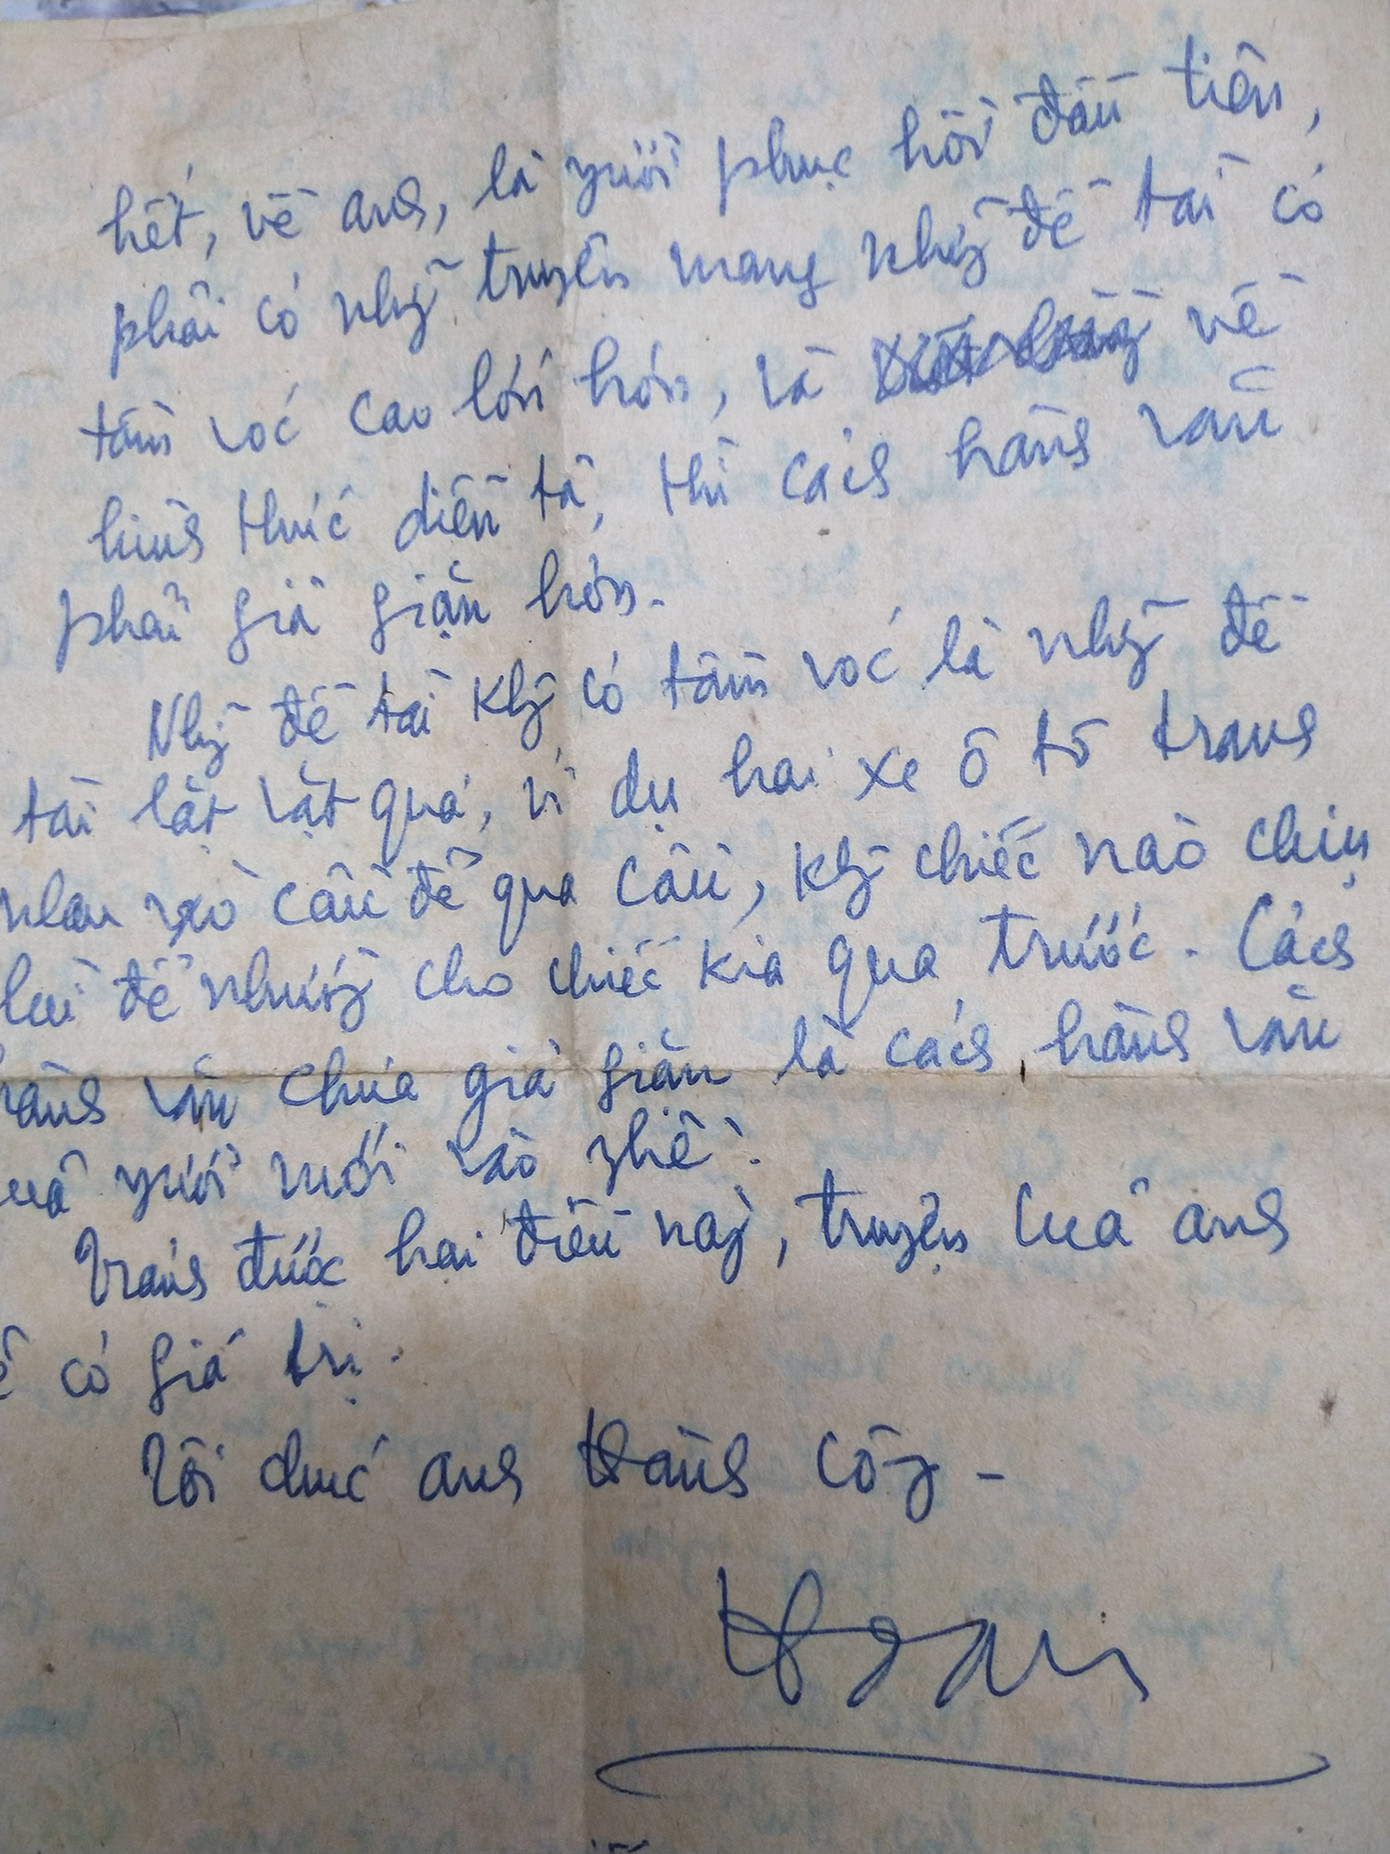 hết, về anh, là người phục hồi đầu tiên,
phải có những truyện mang những đề tài có
tầm vóc cao lớn hơn, và về
hình thức diễn tả, thì cách hành văn
phải già giặn hơn.
Những đề tài không có tầm vóc là những đề
tài lặt vặt quá, ví dụ hai xe ô tô tranh
nhau vào cầu để qua cầu, không chiếc nào chịu
lui để nhường cho chiếc kia qua trước. Cách
hành văn chưa già giặn là cách hành văn
của người mới vào nghề.
Tránh được hai điều này, truyện của anh
sẽ có giá trị.
Tôi chúc anh thành công -
Hoan